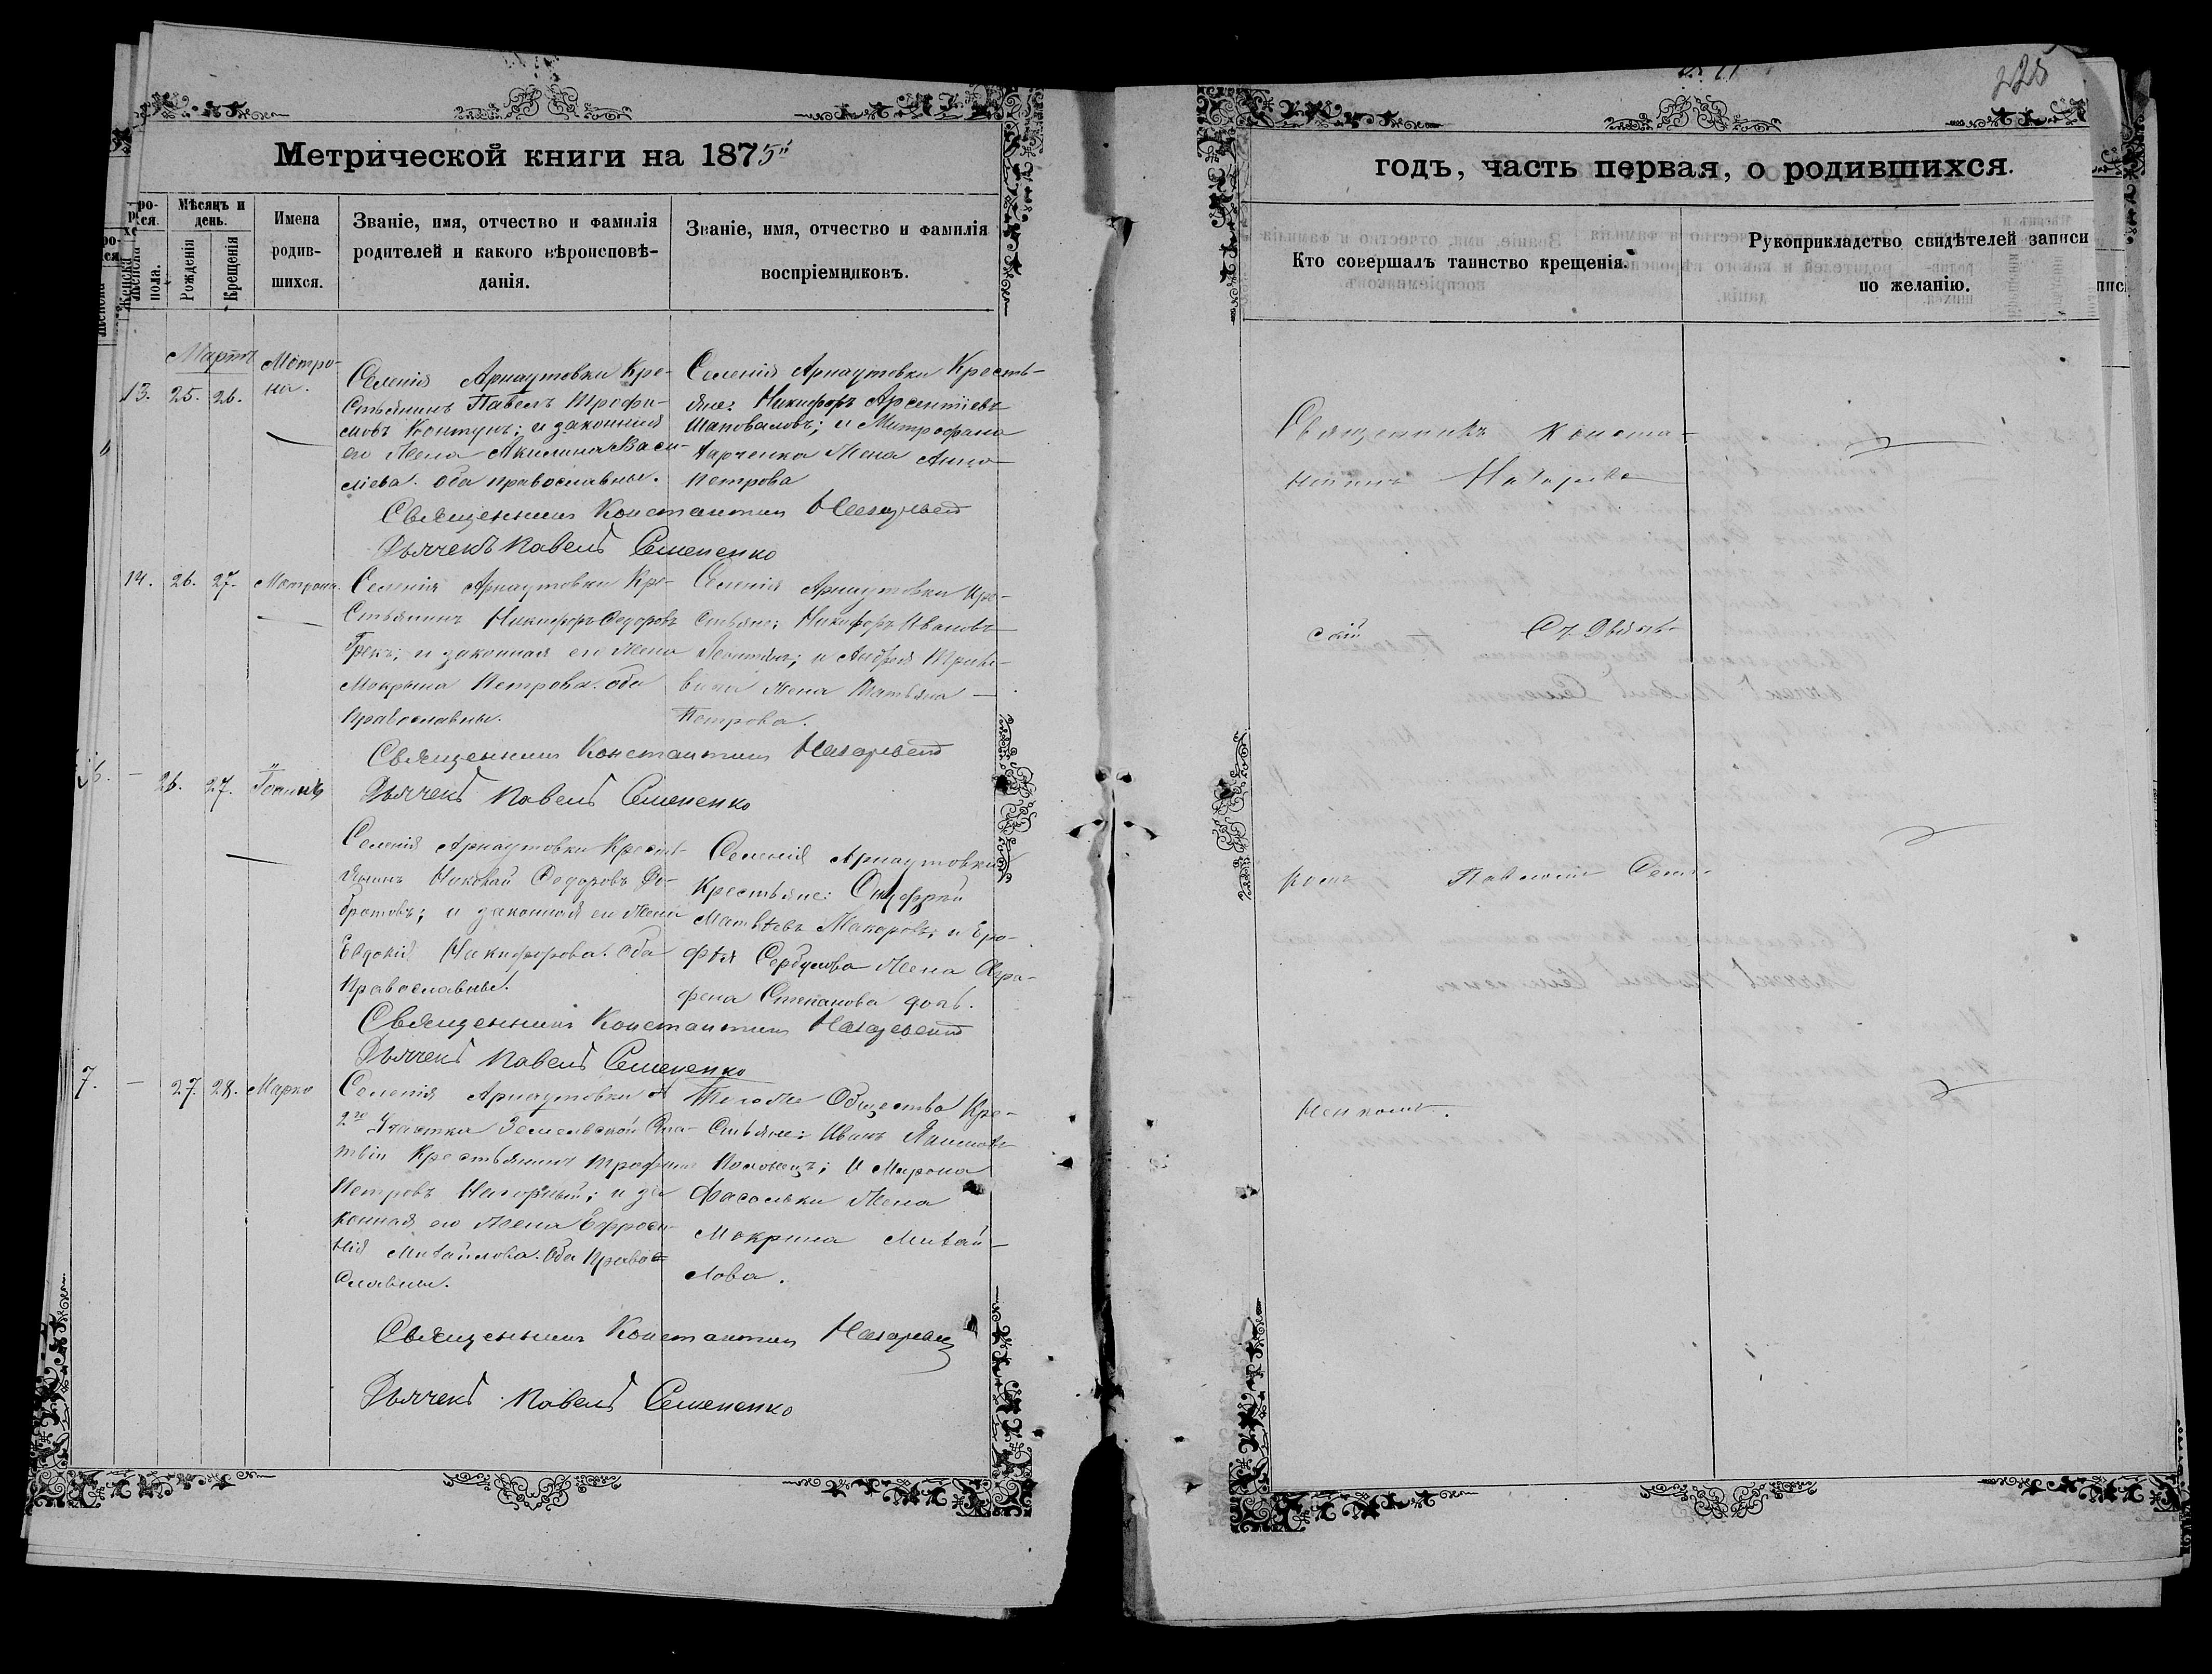 Метрической книги на 1875й
ро-
ся.
Женска
пола.
Мѣсяцъ и
день.
Рожденія
Крещенія
Имена
родив-
шихся.
Званіе, имя, отчество и фамилія
родителей и какого вѣроисповѣ-
данія.
Званіе, имя, отчество и фамилія
воспріемниковъ.
Мартъ
13. 25. 26.
Мотро-
на.
Селенія Арнаутовки Кре-
стьянинъ Павелъ Трофи-
мовъ; и законная
его жена Акилина Васи-
ліева. Оба православные.
Селенія Арнаутовки Кресть-
яне: Никифоръ Арсентіевъ
Шаповаловъ; и Митрофана
жена Анна
Петрова
Священникъ Константинъ
Дьячекъ Павелъ Семененко
14. 26. 27. Мотрона.
Селенія Арнаутовки Кре-
стьянинъ Никифоръ Федоровъ
Грекъ; и законная его жена
Мокрина Петрова. Оба
православные.
Селенія Арнаутовки Кре-
стьяне: Никифоръ Ивановъ
и Андрея
жена Татьяна
Петрова.
Священникъ Константинъ
Дьячекъ Павелъ Семененко
6. — 26. 27. Іоаннъ
Селенія Арнаутовки Кресть-
янинъ Николай Федоровъ До-
братовъ; и законная его жена
Евдокія Никифорова. Оба
православные.
Селенія Арнаутовки
Крестьяне: Онуфрій
Матвѣевъ Макаровъ; и Еро-
фѣя Сербулова жена Агра-
фена Степанова дочь.
Священникъ Константинъ
Дьячекъ Павелъ Семененко
7. — 27. 28. Марко
Селенія Арнаутовки
2го Участка
Крестьянинъ Трофимъ
Петровъ Нагорный; и за-
конная его жена Ефроси-
нія Михайлова. Оба право-
славные.
Того же Общества Кре-
стьяне: Иванъ
и Мирона
жена
Мокрина Михай-
лова.
Священникъ Константинъ
Дьячекъ Павелъ Семененко
225
годъ, часть первая, о родившихся.
Кто совершалъ таинство крещенія.
Рукоприкладство свидѣтелей записи
по желанію.
Священникъ Конста-
нтинъ
скій
Павломъ Семе-
ненкомъ.